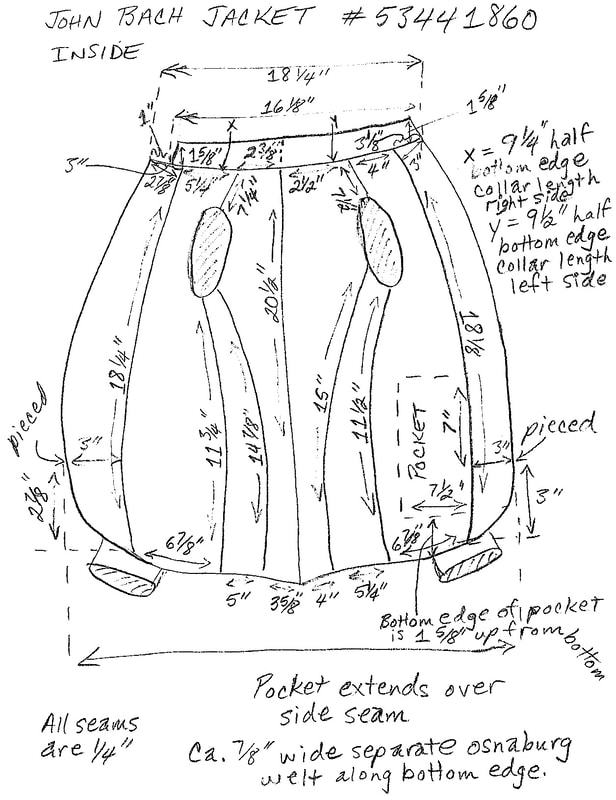 JOHN BACH JACKET # 53441860
INSIDE
18 1/4"
16 1/8"
1"
1 5/8"
x
y
3"
2 7/8"
1 5/8"
5 1/4"
2 3/8"
2 1/2"
3 1/8"
4"
3"
7 1/4"
x = 9 1/4" half
bottom edge
collar length
right side
y = 9 1/2" half
bottom edge
collar length
left side
20 1/2"
18 1/4"
18 1/8
11 3/4"
14 7/8"
15"
11 1/2"
POCKET
7"
7 1/2"
pieced
3"
2 7/8"
3"
pieced
3"
6 7/8"
6 7/8"
5"
3 5/8"
4"
5 1/4"
Bottom edge of pocket
is 1 5/8" up from bottom
Pocket extends over
side seam
All seams
are 1/4"
Ca. 7/8" wide separate osnaburg
welt along bottom edge.